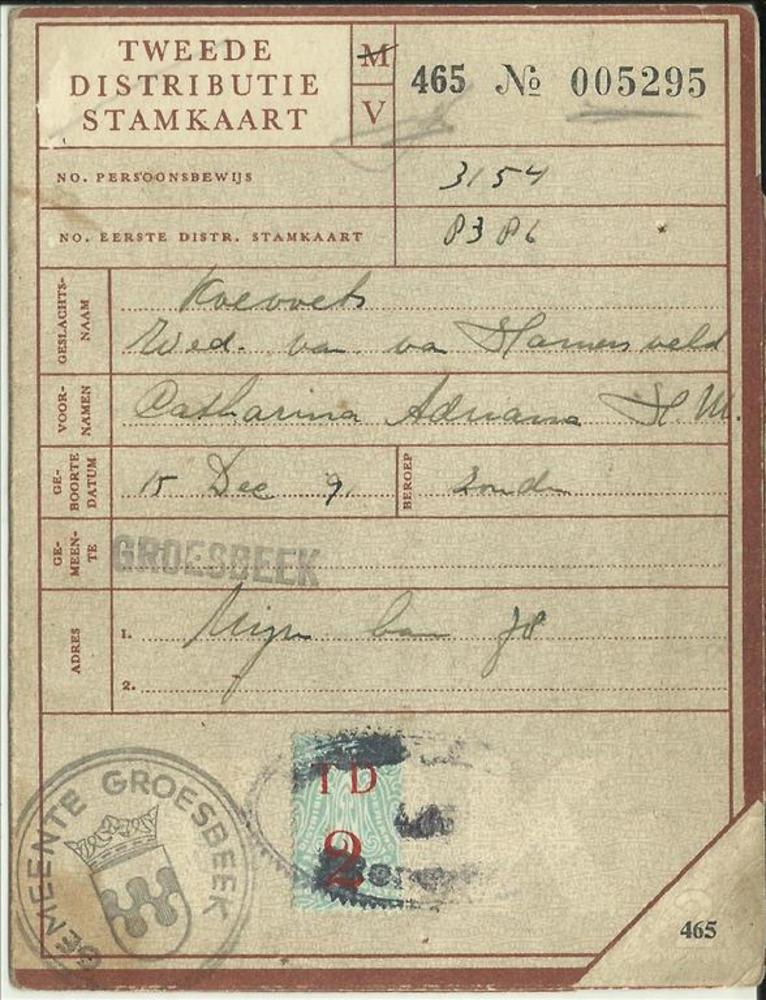 TWEEDE
DISTRIBUTIE
STAMKAART
M
V
465 № 005295
NO. PERSOONSBEWIJS
3154
NO. EERSTE DISTR. STAMKAART
8386
GESLACHTS-
NAAM
Koevoets
Wed. van van Hamersveld
VOOR-
NAMEN
Catharina Adriana H. M.
GE-
BOORTE
DATUM
15 Dec 91
BEROEP
Zonder
GE-
MEEN-
TE
GROESBEEK
ADRES
1.
baan 78
2.
TD
2
GEMEENTE GROESBEEK
465